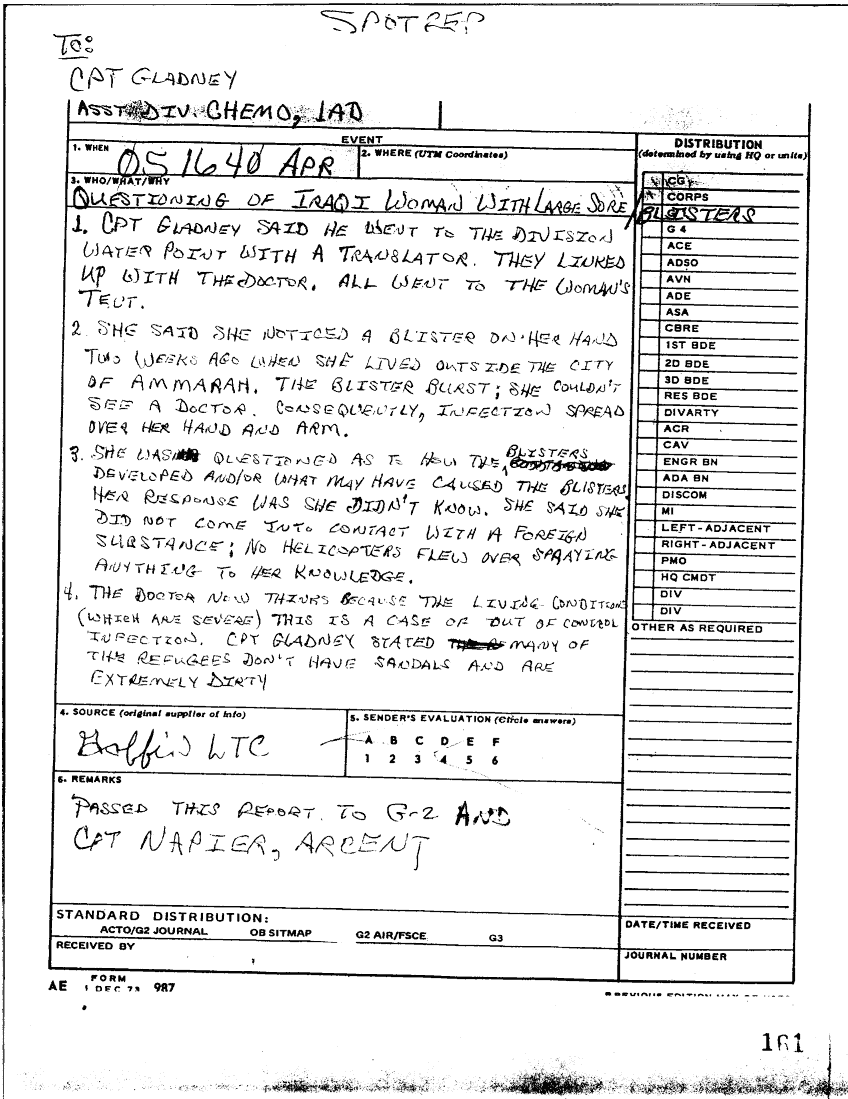 SPOTREP
TO:
CPT GLADNEY
ASST DIV. CHEMO, 1AD
EVENT
1. WHEN
051640 APR
2. WHERE (UTM Coordinates)
3. WHO/WHAT/WHY
QUESTIONING OF IRAQI WOMAN WITH LARGE SORE/BLISTERS
1. CPT GLADNEY SAID HE WENT TO THE DIVISION
WATER POINT WITH A TRANSLATOR. THEY LINKED
UP WITH THE DOCTOR. ALL WENT TO THE WOMAN'S
TENT.
2. SHE SAID SHE NOTICED A BLISTER ON HER HAND
TWO WEEKS AGO WHEN SHE LIVED OUTSIDE THE CITY
OF AMMARAH. THE BLISTER BURST; SHE COULDN'T
SEE A DOCTOR. CONSEQUENTLY, INFECTION SPREAD
OVER HER HAND AND ARM.
3. SHE WAS QUESTIONED AS TO HOW THE BLISTERS
DEVELOPED AND/OR WHAT MAY HAVE CAUSED THE BLISTERS.
HER RESPONSE WAS SHE DIDN'T KNOW. SHE SAID SHE
DID NOT COME INTO CONTACT WITH A FOREIGN
SUBSTANCE; NO HELICOPTERS FLEW OVER SPRAYING
ANYTHING TO HER KNOWLEDGE.
4. THE DOCTOR NOW THINKS BECAUSE THE LIVING CONDITIONS
(WHICH ARE SEVERE) THIS IS A CASE OF OUT OF CONTROL
INFECTION. CPT GLADNEY STATED MANY OF
THE REFUGEES DON'T HAVE SANDALS AND ARE
EXTREMELY DIRTY
4. SOURCE (original supplier of info)
LTC
5. SENDER'S EVALUATION (Circle answers)
A B C D E F
1 2 3 4 5 6
6. REMARKS
PASSED THIS REPORT TO G-2 AND
CPT NAPIER, ARCENT
STANDARD DISTRIBUTION:
ACTO/G2 JOURNAL OB SITMAP G2 AIR/FSCE G3
RECEIVED BY
DISTRIBUTION
(determined by using HQ or units)
CG
CORPS
G 4
ACE
ADSO
AVN
ADE
ASA
CBRE
1ST BDE
2D BDE
3D BDE
RES BDE
DIVARTY
ACR
CAV
ENGR BN
ADA BN
DISCOM
MI
LEFT-ADJACENT
RIGHT-ADJACENT
PMO
HQ CMDT
DIV
DIV
OTHER AS REQUIRED
DATE/TIME RECEIVED
JOURNAL NUMBER
AE FORM 1 DEC 73 987
161